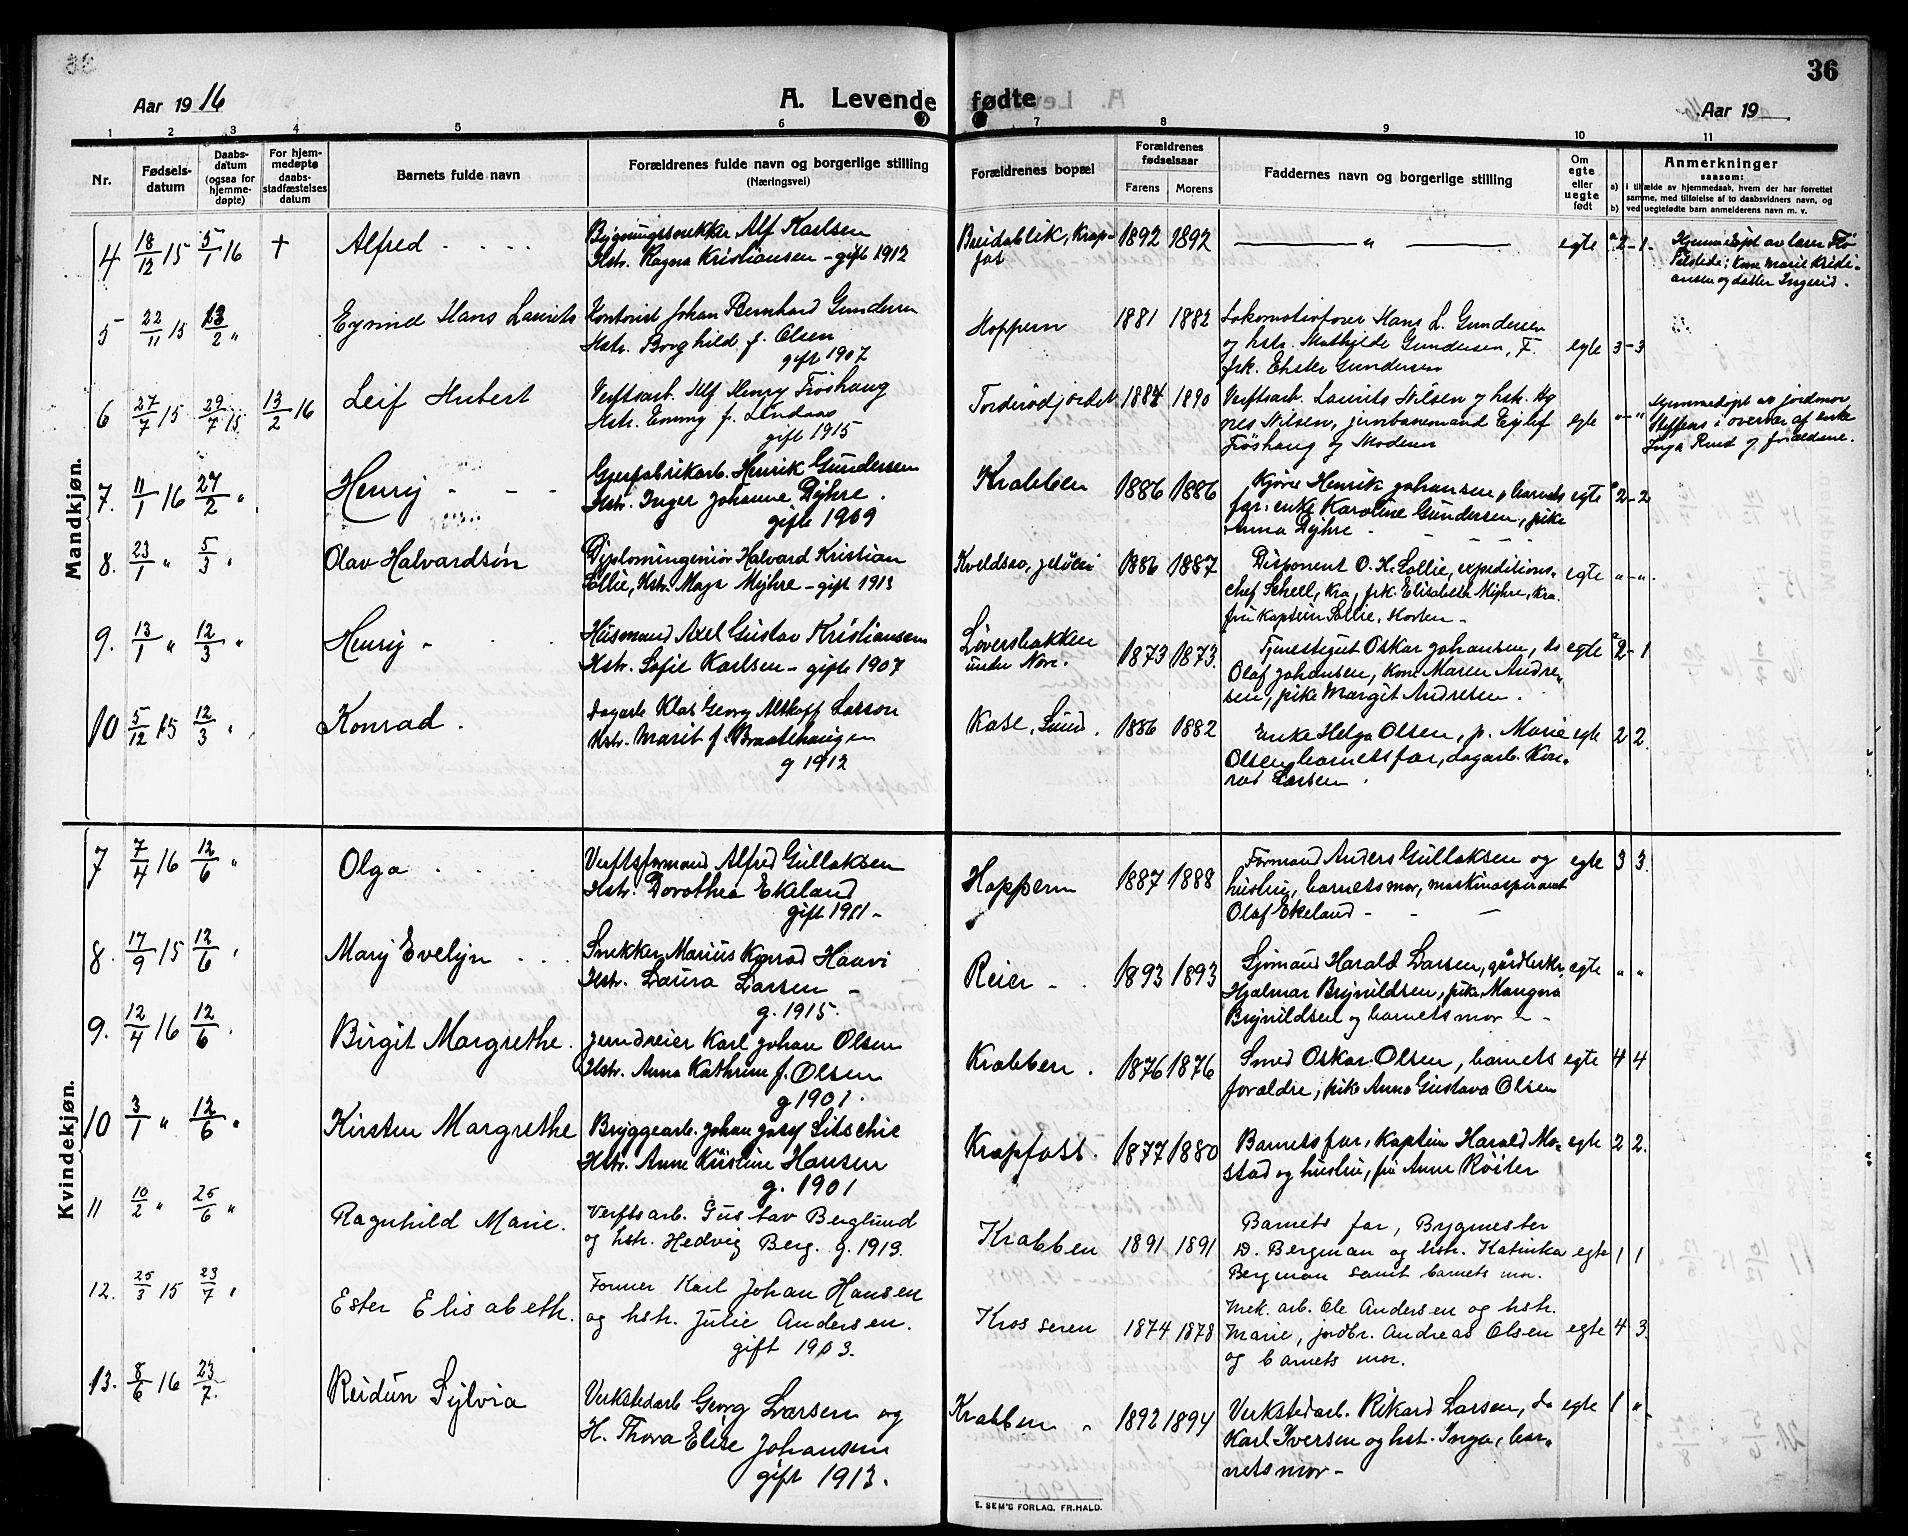 36
Aar 1916 A. Levende fødte Aar 19
1 2 3 4 5 6 7 8 9 10 11
Nr. Fødselsdatum Daabsdatum (ogsaa for hjemmedøpte) For hjemmedøpte daabsstadfæstelses datum Barnets fulde navn Forældrenes fulde navn og borgerlige stilling (Næringsvei) Forældrenes bopæl Forældrenes fødselsaar Farens Morens Faddernes navn og borgerlige stilling Om egte eller uegte født Anmerkninger
saasom:
a) i tilfælde av hjemmedaab, hvem der har forrettet
samme, med tilføielse af to daabsvidners navn, og
b) ved uegtefødte barn anmelderens navn m. v.
Mandkjøn.
4 18/12 15 5/1 16 + Alfred Bygningssnekker Alf Karlsen Breidablik, Krap- 1892 1892 " egte 2-1
Hstr. Ragna Kristiansen - gift 1912 fos
Hjemmedøpt av lærer
Kone Marie Kristi-
ansen og datter Ingerid.
5 22/11 15 13/2 " Eyvind Hans Laurits Kontorist Johan Bernhard Gundersen Hoppern 1881 1882 Lokomotivfører Hans L. Gundersen egte 3-3
Hstr. Borghild f. Olsen og hstr. Mathilde Gundersen, F.
gift 1907 frk. Ester Gundersen
6 27/7 15 29/7 15 13/2 16 Leif Hubert Verftsarb. Alf Henry Frøshaug Torderødjordet 1884 1890 Verftsarb. Laurits Nilsen og hstr. Ag- egte "-"
Hstr. Emmy f. Lindaas nes Nilsen, jernbanemand Eylef
gift 1915 Frøshaug og Moderen
Hjemmedøpt av jordmor
Steffens i overvær af enke
Inga Ruud og forældrene.
7. 11/1 16 27/2 " Henry Gjærfabrikarb. Henrik Gundersen Krabben 1886 1886 Kjører Henrik Johansen, barnets egte 2-2
Hstr. Inger Johanne Dyhre. far, enke Karoline Gundersen, pike
gifte 1909 Anna Dyhre
8. 23/1 " 5/3 " Olav Halvardsøn Diplomingeniør Halvard Kristian Kveldsro, Jeløen 1886 1887 Disponent O. H. Sollie, expeditions- egte "-"
Sollie, Hstr. Maja Myhre - gift 1913 chef Scheel, Kra, frk. Elisabeth Myhre, Kra.
fru Kaptein Sollie, Horten
9. 13/1 " 12/3 " Henry Husmand Axel Gustav Kristiansen Løversbakken 1873 1873 Tjenestegut Oskar Johansen, do egte 2-1
Hstr. Sofie Karlsen - gifte 1907 under Nore. Olaf Johansen, kone Maren Andre-
sen, pike Margit Andresen.
10 5/12 15 12/3 " Konrad Dagarb. Klas Georg Larson Kase, Sund. 1886 1882 Enke Helga Olsen, p. Marie egte 2 2
Hstr. Marit f. Braatehaugen Olsen, barnets far, dagarb. Kon-
g 1912 rad Larsen.
Kvindekjøn.
7 7/4 16 12/6 " Olga Verftsformand Alfred Gullaksen Hoppern 1887 1888 Formand Anders Gullaksen og egte 3 3
Hstr. Dorothea Ekeland hustru, barnets mor, maskinaspirant
gift 1911 - Olaf Ekeland
8. 17/9 15 12/6 " Mary Evelyn Snekker Marius Konrad Haavi Reier 1893 1893 Sjømand Harald Larsen, egte " "
Hstr. Laura Larsen Hjalmar Brynildsen, pike Mangora
g. 1915. Brynildsen og barnets mor
9. 12/4 16 12/6 " Birgit Margrethe. Jerndreier Karl Johan Olsen Krabben. 1876 1876 Smed Oskar Olsen, barnets egte 4 4
Hstr. Anna Kathrine f. Olsen forældre, pike Anna Gustava Olsen
g 1901.
10 3/1 " 12/6 " Kirsten Margrethe Bryggearb. Johan Josef Sitschie Krapfoss. 1877 1880 Barnets far, Kaptein Harald Mo- egte 2 2
Hstr. Anne Kristine Hansen stad og hustru, fru Anne Røiter
g. 1901
11 10/2 " 25/6 " Ragnhild Marie. Verftsarb. Gustav Berglund Krabben 1891 1891 Barnets far, Bygmester egte 1 1
og hstr. Hedvig Berg. g. 1913. D. Bergman og hstr. Katinka
Bergman samt barnets mor.
12. 25/3 15 23/7 " Ester Elisabeth. Former Karl Johan Hansen Krosseren 1874 1878 Mek. arb. Ole Andersen og hstr. egte 4 3
og hstr. Julie Andersen. Marie, jordbr. Andreas Olsen
gift 1903. og barnets mor.
13. 8/6 16 23/7. Reidun Sylvia Verkstedarb. Georg Larsen og Krabben 1892 1894 Verkstedarb. Rikard Larsen, do egte 1 "
H. Thora Elise Johansen Karl Iversen og hst. Inga, bar-
gift 1913. nets mor
E. SEM'S FORLAG, FR.HALD.